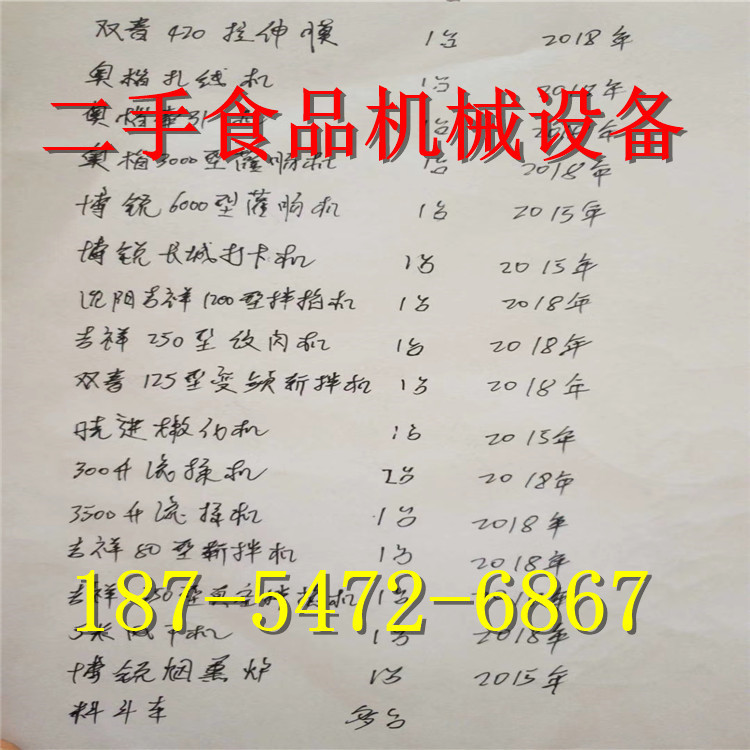 双音 420 拉伸膜 1台 2018年
奥楷扎线机 1台 2018年
二手食品机械设备
奥楷3000型灌肠机 1台 2018年
博锐6000型灌肠机 1台 2015年
博锐长城打卡机 1台 2015年
沈阳吉祥1200型拌馅机 1台 2018年
吉祥250型绞肉机 1台 2018年
双音125型变频斩拌机 1台 2018年
嫩化机 1台 2015年
300升滚揉机 2台 2018年
3500升滚揉机 1台 2018年
吉祥80型斩拌机 1台 2018年
吉祥 1台
187-5472-6867
机 1台 2018年
博锐烟熏炉 1台 2015年
料斗车 多台